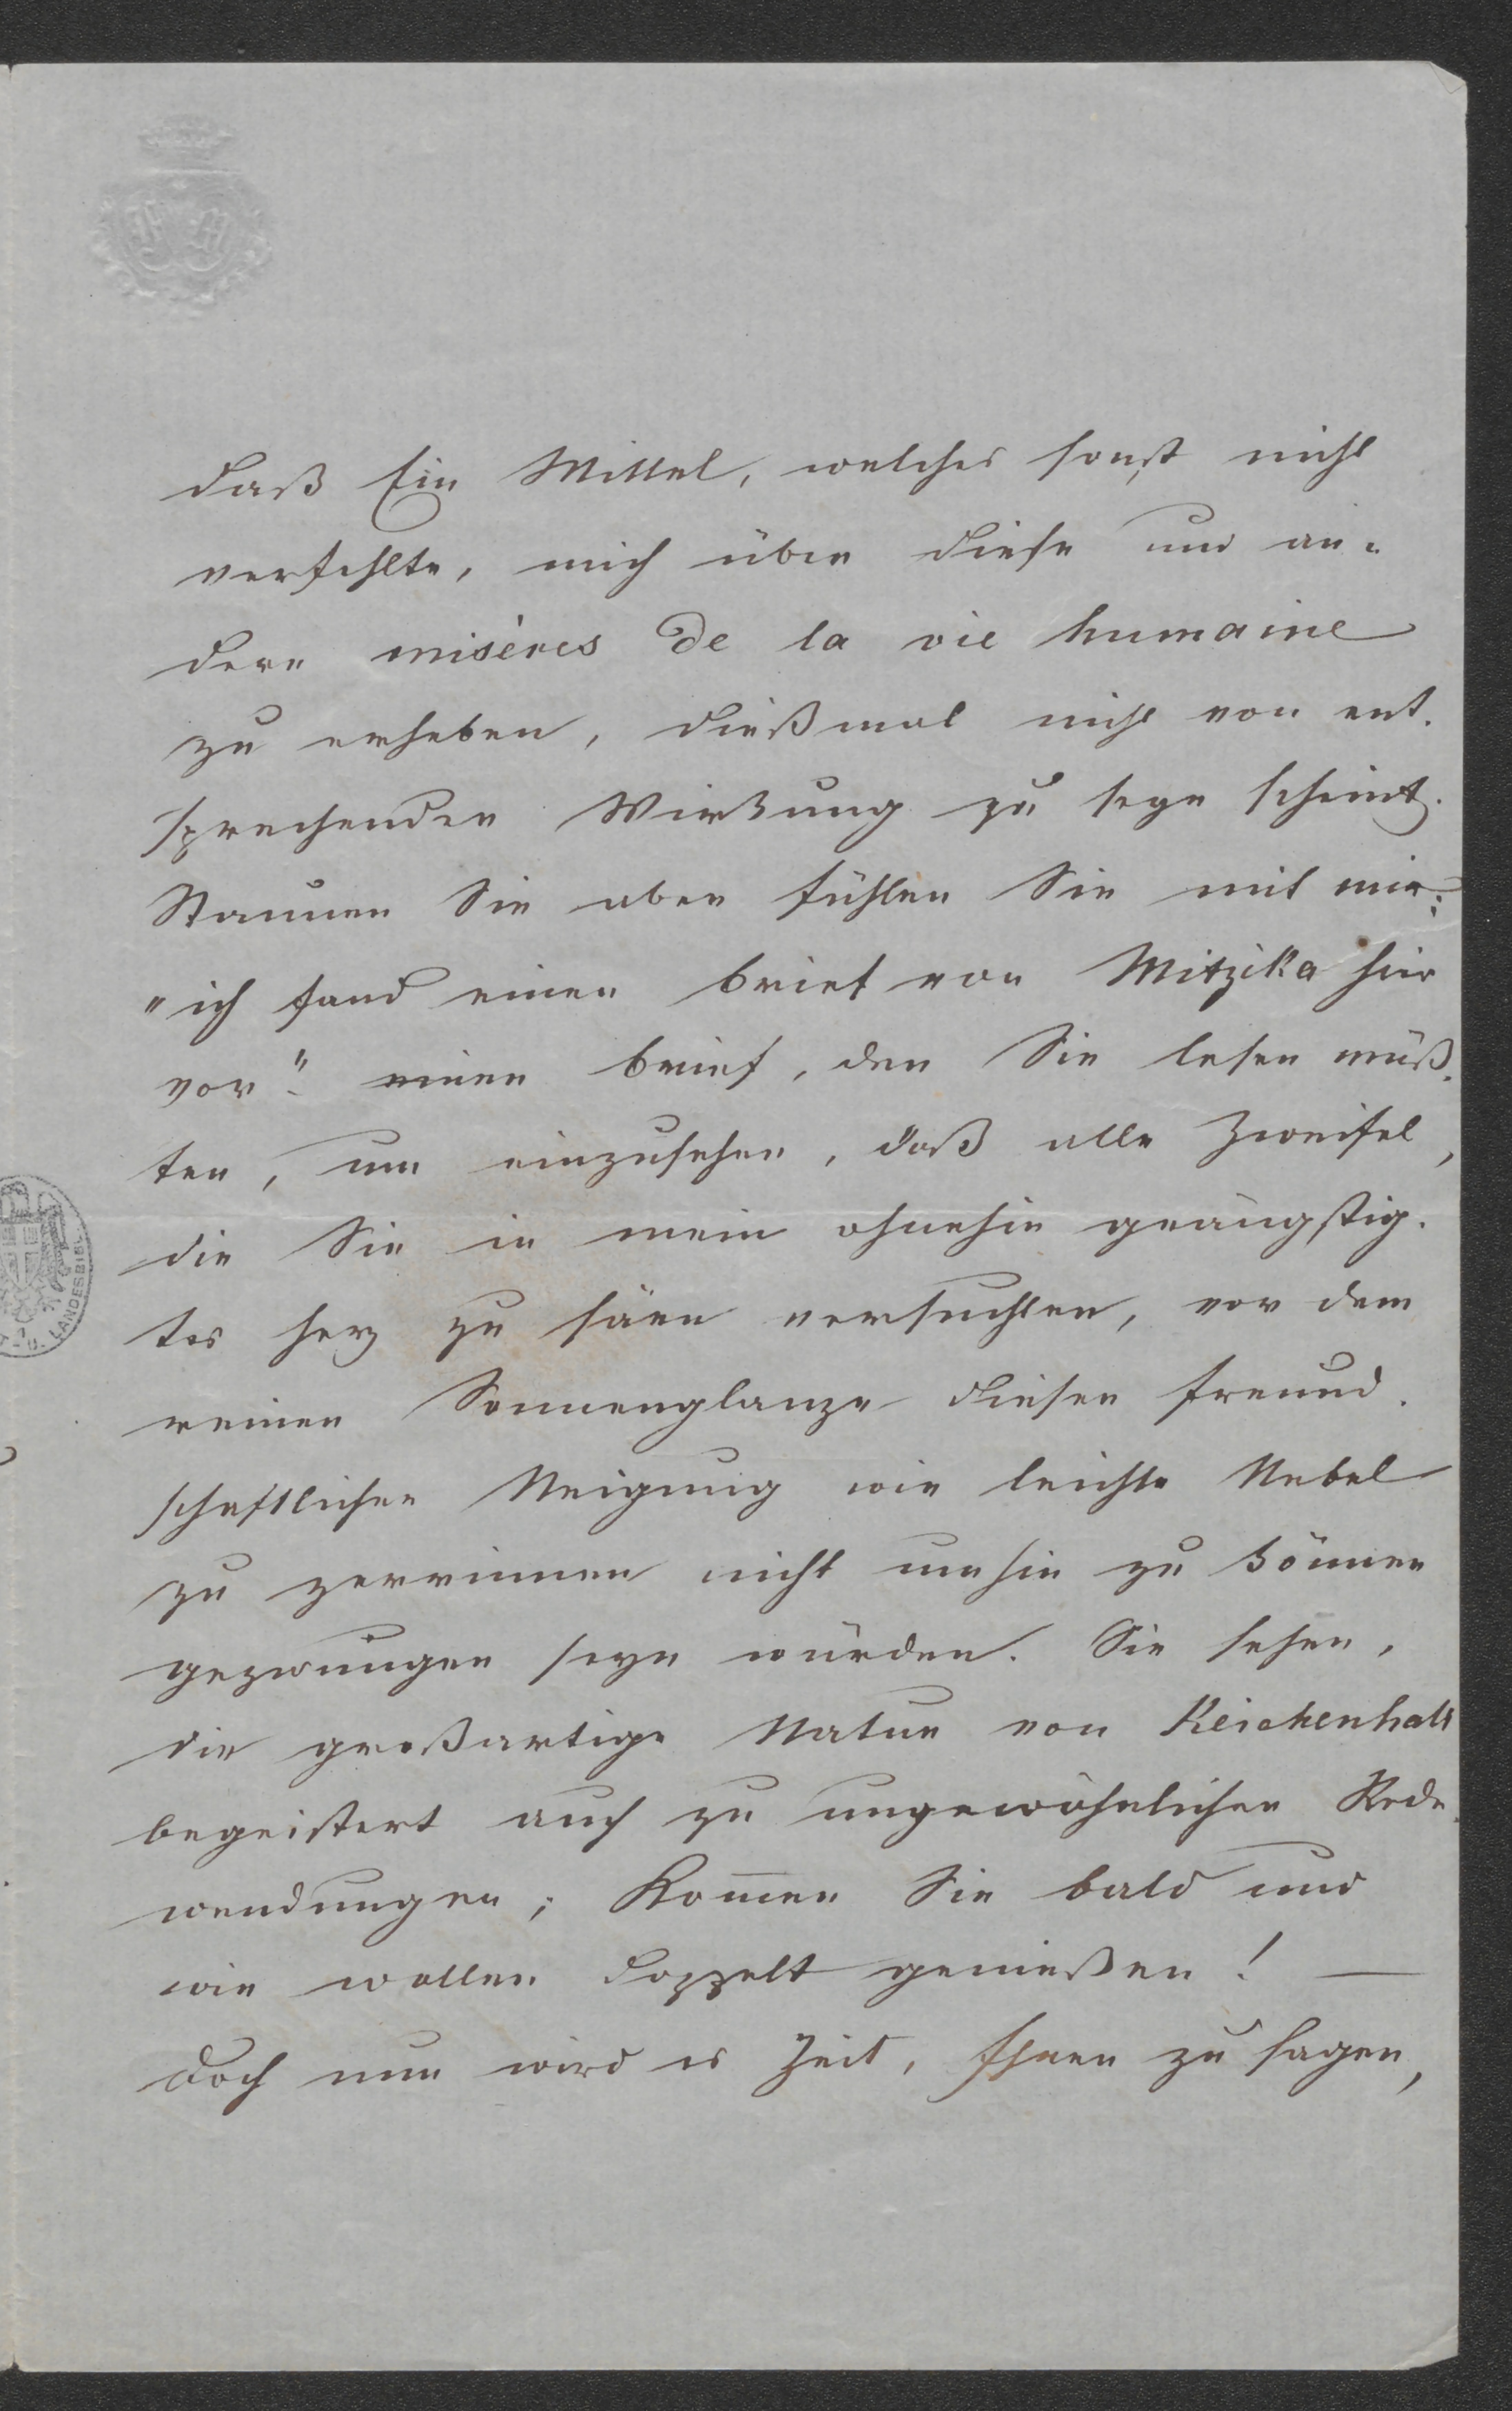 daß Ein Mittel, welches sonst nicht
verfehlte, mich über diese und an-
dere misères de la vie humaine
zu erheben, dießmal nicht von ent-
sprechender Wirkung zu seyn scheint.
Staunen Sie aber fühlen Sie mit mir:
"ich fand einen Brief von Mitzika hier
vor" – einen Brief, den Sie lesen müß-
ten, um einzusehen, daß alle Zweifel,
die Sie in mein ohnehin geängstig-
tes Herz zu säen versuchten, vor dem
reinen Sonnenglanze dieser freund-
schaftlichen Neigung wie leichte Nebel
zu zerrinnen nicht umhin zu können
gezwungen seyn würden. Sie sehen,
die großartige Natur von Reichenhall
begeistert auch zu ungewöhnlichen Rede-
wendungen; Kom̅en Sie bald und
wir wollen doppelt genießen! —
Doch nun wird es Zeit, Ihnen zu sagen,
LANDESBIBL.